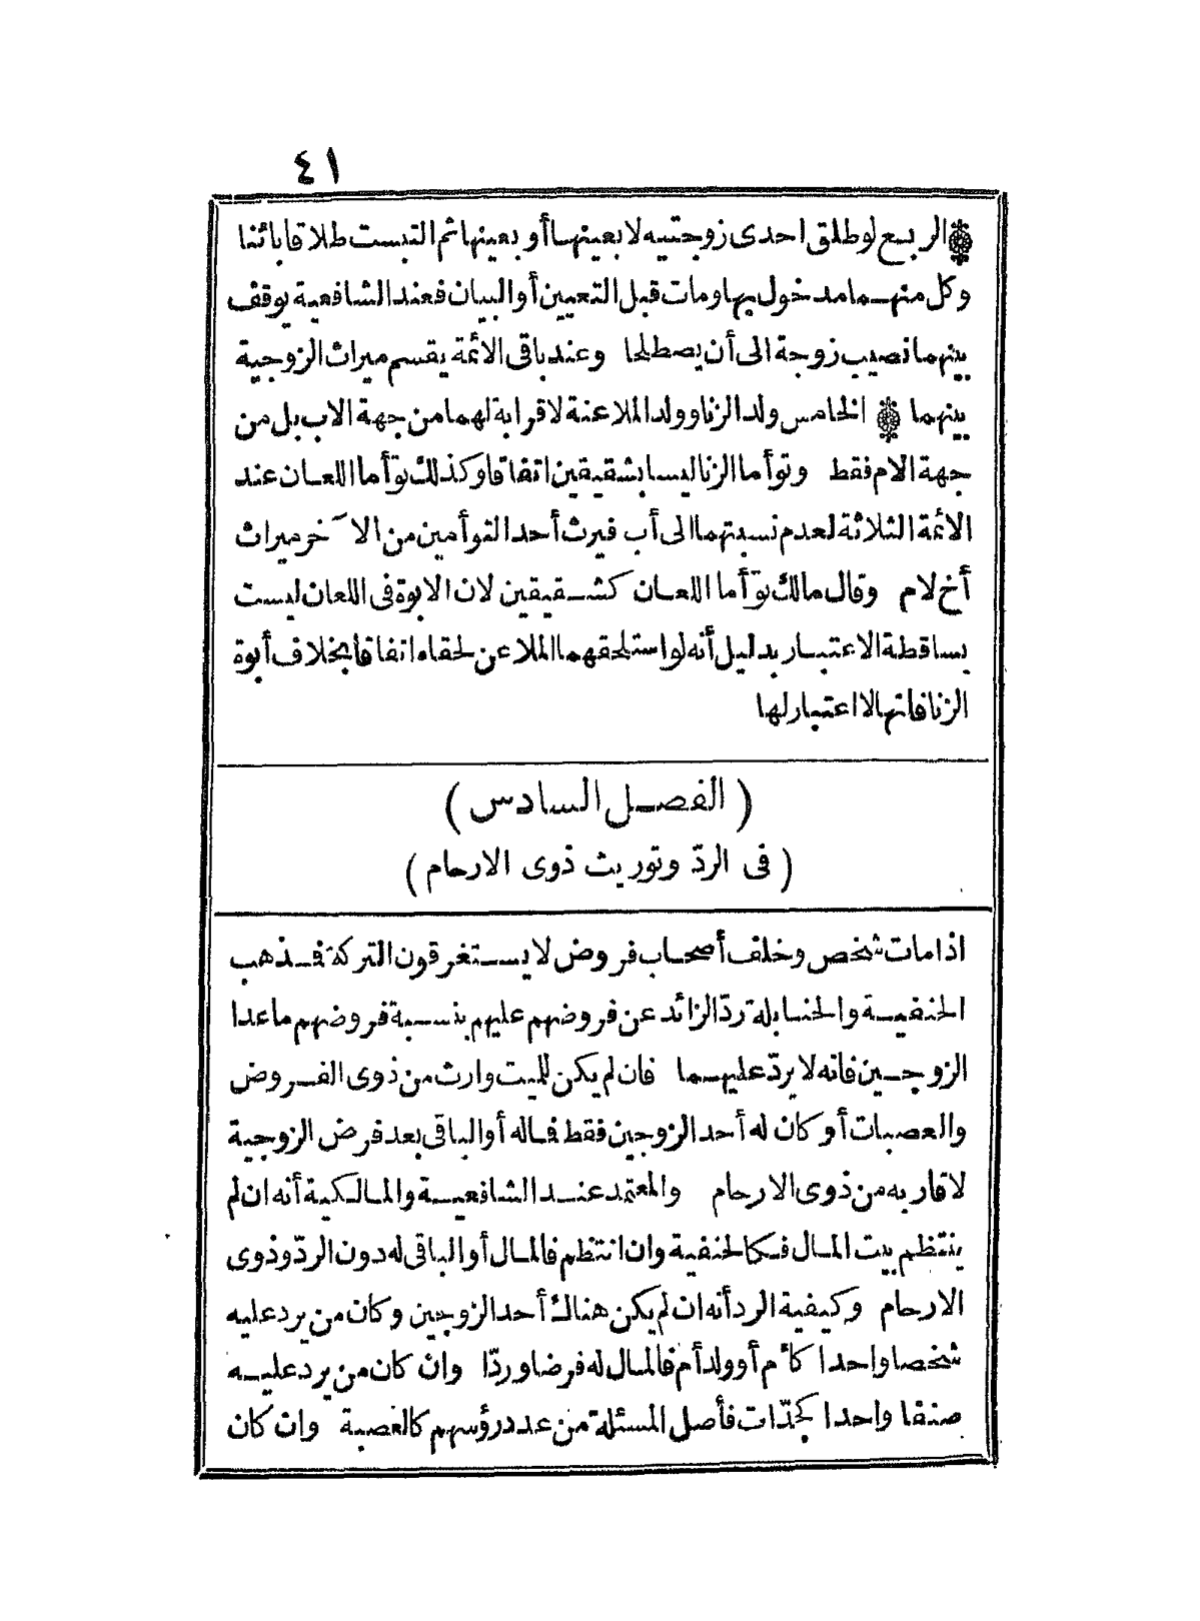 ٤١
الربع لو طلق احدى زوجتيه لا بعينها أو بعينها ثم التبست طلاقا بائنا
وكل منهما مدخول بها ومات قبل التعيين أو البيان فعند الشافعية يوقف
بينهما نصيب زوجة الى أن يصطلحا وعند باقى الائمة يقسم ميراث الزوجية
بينهما الخامس ولد الزنا وولد الملاعنة لا قرابة لهما من جهة الاب بل من
جهة الام فقط وتوأما الزنا ليسا بشقيقين اتفاقا وكذلك توأما اللعان عند
الائمة الثلاثة لعدم نسبتهما الى أب فيرث أحد التوأمين من الآخر ميراث
أخ لام وقال مالك توأما اللعان كشقيقين لان الابوة فى اللعان ليست
بساقطة الاعتبار بدليل أنه لو استلحقهما الملاعن لحقاه اتفاقا بخلاف أبوة
الزنا فانها لا اعتبار لها
(الفصل السادس)
(فى الردّ وتوريث ذوى الارحام)
اذا مات شخص وخلف أصحاب فروض لا يستغرقون التركة فذهب
الحنفية والحنابلة ردّ الزائد عن فروضهم عليهم بنسبة فروضهم ما عدا
الزوجين فانه لا يردّ عليهما فان لم يكن للميت وارث من ذوى الفروض
والعصبات أو كان له أحد الزوجين فقط فماله أو الباقى بعد فرض الزوجية
لاقاربه من ذوى الارحام والمعتمد عند الشافعية والمالكية أنه ان لم
ينتظم بيت المال فكالحنفية وان انتظم فالمال أو الباقى له دون الردّ وذوى
الارحام وكيفية الرد أنه ان لم يكن هناك أحد الزوجين وكان من يرد عليه
شخصا واحدا كأم أو ولد أم فالمال له فرضا وردّا وان كان من يرد عليه
صنفا واحدا كجدّات فأصل المسئلة من عدد رؤسهم كالعصبة وان كان